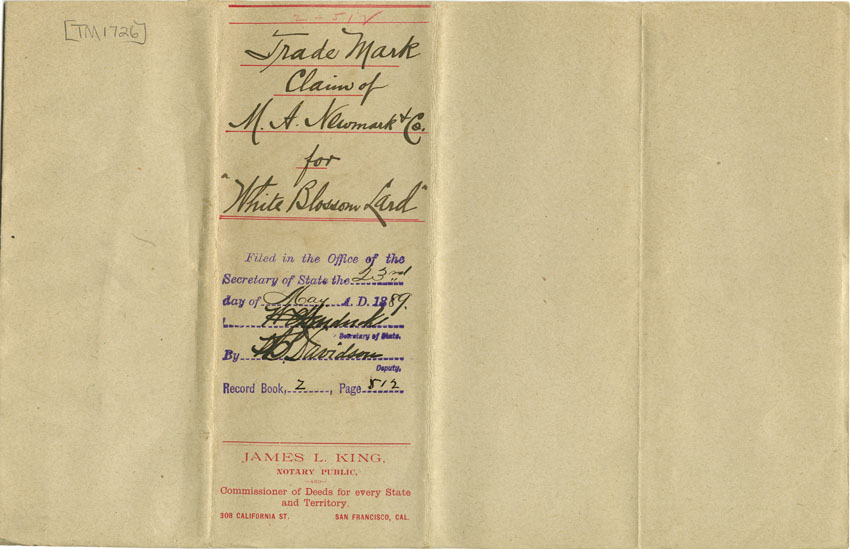 [TM1726]
2-512
Trade Mark
Claim of
M. A. Newmark & Co.
for
"White Blossom Lard"
Filed in the Office of the
Secretary of State the 23rd
day of May A. D. 1889.
W C Hendricks
Secretary of State.
By Davidson
Deputy,
Record Book, 2, Page 512
JAMES L. KING,
NOTARY PUBLIC,
—AND—
Commissioner of Deeds for every State
and Territory.
308 CALIFORNIA ST. SAN FRANCISCO, CAL.